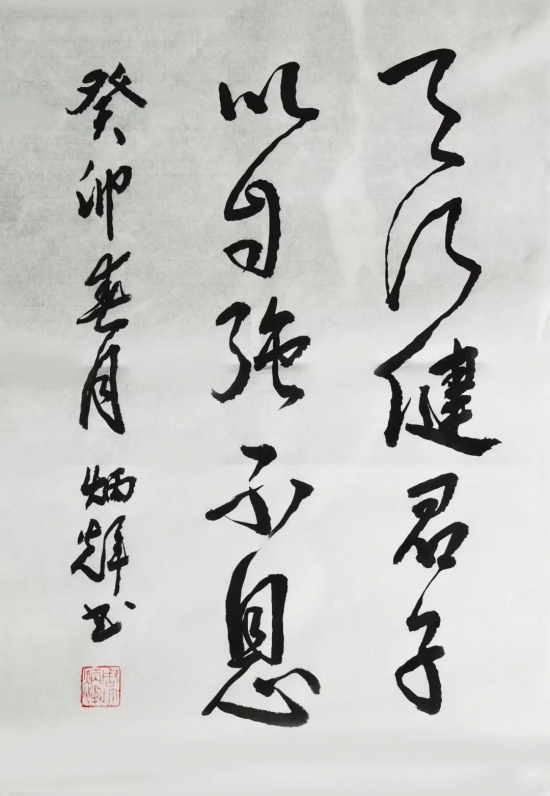 天行健君子
以自强不息
癸卯春月炳辉书